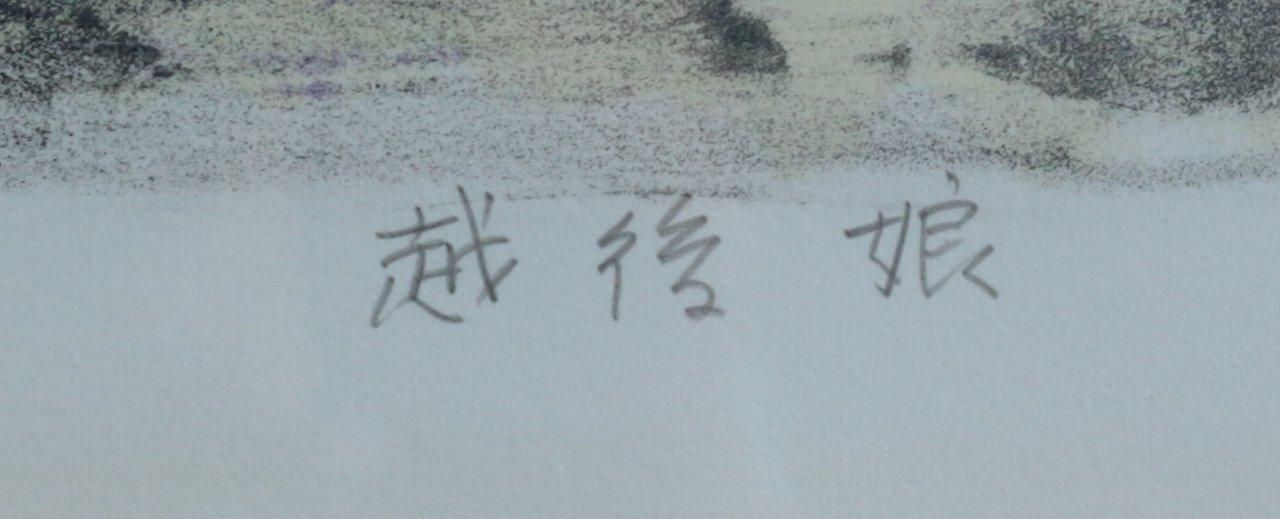 越後娘